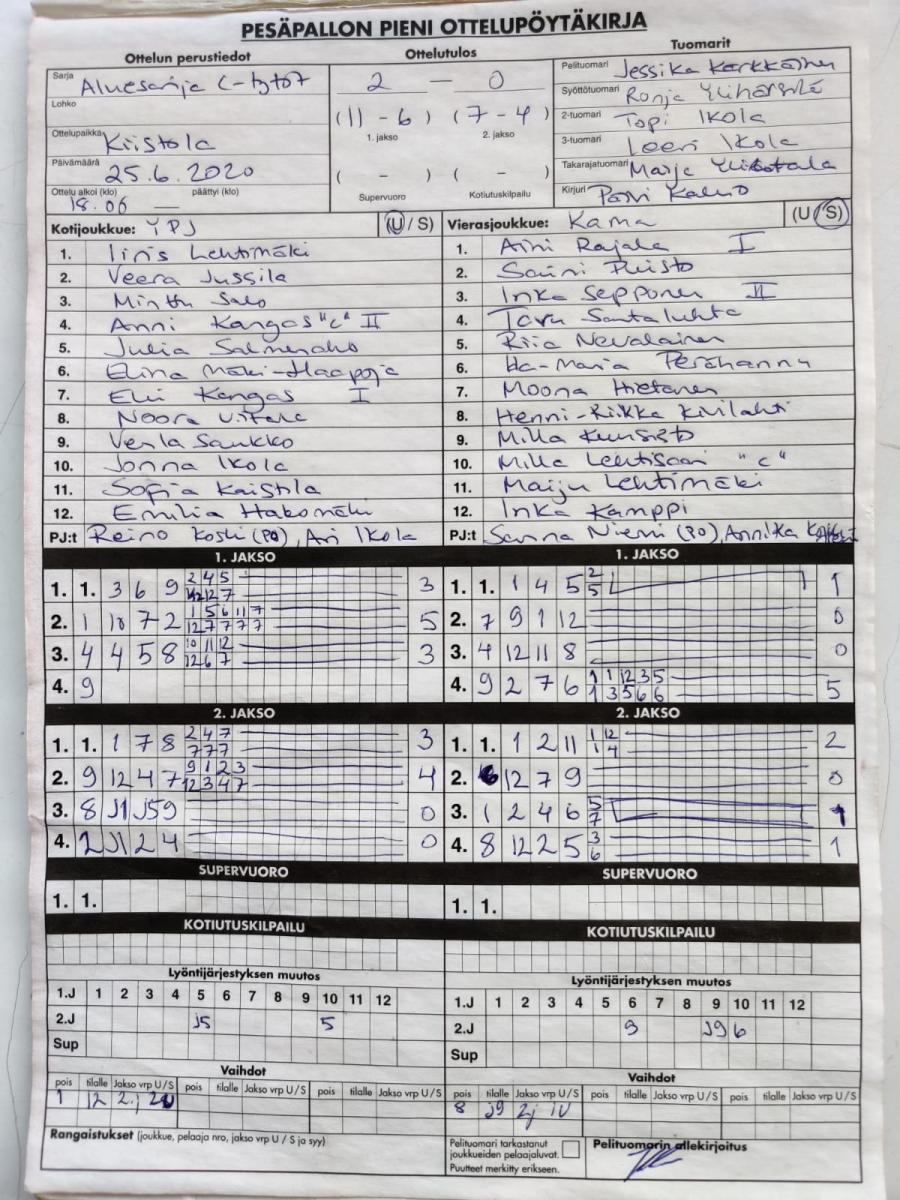 PESÄPALLON PIENI OTTELUPÖYTÄKIRJA
Ottelun perustiedot
Ottelutulos
Tuomarit
Sarja Aluesarja C-tytöt
2 — 0
Pelituomari Jessika Karkkainen
Lohko
Syöttötuomari Ronja
(11 - 6) (7 - 4)
1. jakso 2. jakso
2-tuomari Topi Ikola
Ottelupaikka Kiistola
3-tuomari Leeri Ikola
Päivämäärä 25.6.2020
( - ) ( - )
Takarajatuomari Marja
Ottelu alkoi (klo) päättyi (klo)
18.06 —
Supervuoro Kotiutuskilpailu
Kirjuri
Kotijoukkue: YPJ (U / S)
Vierasjoukkue: Kama (U / S)
1. Iiris Lehtimäki
1. Aini Rajala I
2. Veera Jussila
2. Saini Puisto
3. Minttu Salo
3. Inka Sepponen II
4. Anni Kangas "c" II
4. Taru Santaluhta
5. Julia Salmenaho
5. Riia Nevalainen
6. Elina Mäki-Haapoja
6. Iia-Maria Perähannu
7. Elli Kangas I
7. Moona Hietanen
8. Noora Viitala
8. Henni-Riikka Kivilahti
9. Venla Saukko
9. Milla Kuusisto
10. Jonna Ikola
10. Milla Lehtisaari "c"
11. Sofia Kaistila
11. Maiju Lehtimäki
12. Emilia Hakomäki
12. Inka Kamppi
PJ:t Reino Koski (PO), Ari Ikola
PJ:t Sanna Niemi (PO), Annika
1. JAKSO
1. JAKSO
1. 1. 3 6 9 2 4 5 3
12 12 7
1. 1. 1 4 5 2 1
5
2. 1 10 7 2 1 5 6 11 7 5
12 7 7 7 7
2. 7 9 1 12 0
3. 4 4 5 8 10 11 12 3
12 6 7
3. 4 12 11 8 0
4. 9
4. 9 2 7 6 1 1 12 3 5 5
1 3 5 6 6
2. JAKSO
2. JAKSO
1. 1. 1 7 8 2 4 7 3
7 7 7
1. 1. 1 2 11 1 12 2
1 4
2. 9 12 4 7 9 1 2 3 4
12 3 4 7
2. 12 7 9 0
3. 8 J1 J5 9 0
3. 1 2 4 6 5 1
7
4. 2 J1 2 4 0
4. 8 12 2 5 3 1
6
SUPERVUORO
SUPERVUORO
1. 1.
1. 1.
KOTIUTUSKILPAILU
KOTIUTUSKILPAILU
Lyöntijärjestyksen muutos
Lyöntijärjestyksen muutos
1.J 1 2 3 4 5 6 7 8 9 10 11 12
1.J 1 2 3 4 5 6 7 8 9 10 11 12
2.J J5 5
2.J 9 J9 6
Sup
Sup
Vaihdot
Vaihdot
pois tilalle Jakso vrp U/S pois tilalle Jakso vrp U/S pois tilalle Jakso vrp U/S
pois tilalle Jakso vrp U/S pois tilalle Jakso vrp U/S pois tilalle Jakso vrp U/S
1 12 2.j
8 J9 2j 1U
Rangaistukset (joukkue, pelaaja nro, jakso vrp U / S ja syy)
Pelituomari tarkastanut
joukkueiden pelaajaluvat.
Puutteet merkitty erikseen.
Pelituomarin allekirjoitus